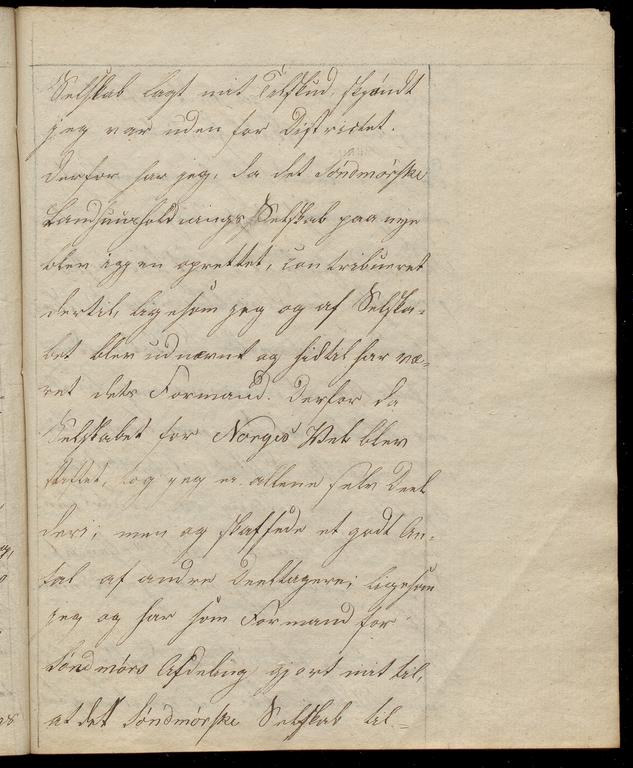 Selskab lagt mit Tilskud, skjøndt
jeg var uden for Districtet.
Derfor har jeg, da det Søndmørske
Landhuusholdnings Selskab paa nye
blev igjen oprettet, contribueret
dertil, ligesom jeg og af Selska-
bet blev udnævnt og hidtil har væ-
ret dets Formand. Derfor da
Selskabet for Norges Vel blev
stiftet, tog jeg ei allene selv Deel
deri; men og skaffede et godt An-
tal af andre Deeltagere; ligesom
jeg og har som Formand for
Søndmørs Afdeling gjort mit til,
at det Søndmørske Selskab til-